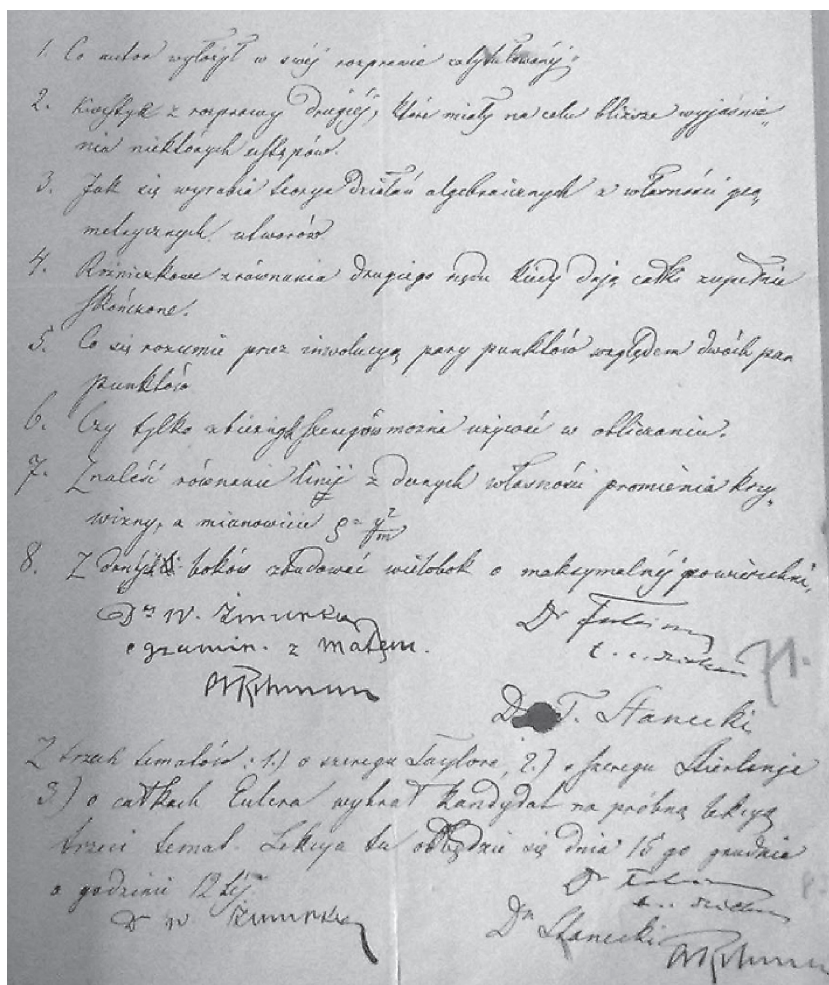 1. Co autor wyłożył w swéj rozprawie zatytułowanéj;
2. Kwestyje z rozprawy drugiéj, które miały na celu bliższe wyjaśnie-
nia niektórych ustępów.
3. Jak się wyrabia teorya działań algebraicznych z własności geo-
metrycznych utworów
4. Różniczkowe zrównania drugiego rzędu kiedy dają całki zupełnie
skończone.
5. Co się rozumie przez inwolucyą pary punktów względem dwóch par
punktów
6. Czy tylko zbieżnych szeregów można używać w obliczaniu.
7. Znaleść równanie linij z danych własności promienia krzy-
wizny, a mianowicie ρ = y²/m
8. Z danych boków zbudować wielobok o maksymalnéj powierzchni.
Dr W. Żmurko
egzamin. z matem.
Dr
Dr T. Stanecki
71.
Z trzech tematów: 1.) o szeregu Taylora, 2.) o szeregu Stirlinga
3.) o całkach Eulera wybrał kandydat na próbną lekcyą
trzeci temat. Lekcya ta odbędzie się dnia 15 go grudnia
o godzinie 12 téj.
Dr
Dr W. Żmurko
Dr Stanecki